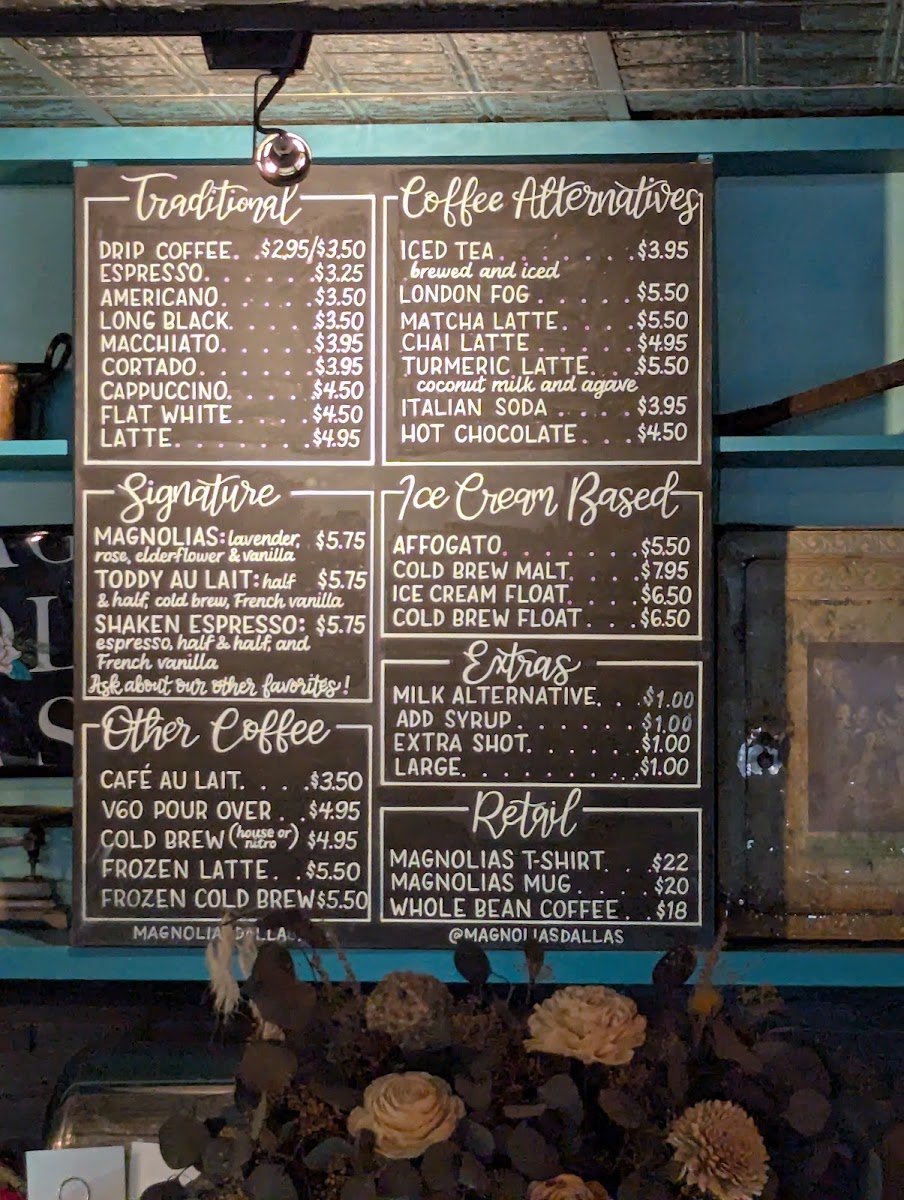 Traditional
DRIP COFFEE. $2.95/$3.50
ESPRESSO. . . . . .$3.25
AMERICANO. . . . .$3.50
LONG BLACK. . . . .$3.50
MACCHIATO. . . . .$3.95
CORTADO. . . . . .$3.95
CAPPUCCINO. . . . .$4.50
FLAT WHITE . . . . .$4.50
LATTE. . . . . . . .$4.95
Signature
MAGNOLIAS: lavender, $5.75
rose, elderflower & vanilla
TODDY AU LAIT: half $5.75
& half, cold brew, French vanilla
SHAKEN ESPRESSO: $5.75
espresso, half & half, and
French vanilla
Ask about our other favorites!
Other Coffee
CAFÉ AU LAIT. . . .$3.50
V60 POUR OVER . .$4.95
COLD BREW (house or nitro) $4.95
FROZEN LATTE. . .$5.50
FROZEN COLD BREW $5.50
Coffee Alternatives
ICED TEA . . . . . . .$3.95
brewed and iced
LONDON FOG . . . . . $5.50
MATCHA LATTE. . . . .$5.50
CHAI LATTE . . . . . .$4.95
TURMERIC LATTE. . .$5.50
coconut milk and agave
ITALIAN SODA . . . . .$3.95
HOT CHOCOLATE. . . .$4.50
Ice Cream Based
AFFOGATO. . . . . . .$5.50
COLD BREW MALT. . . .$7.95
ICE CREAM FLOAT. . . .$6.50
COLD BREW FLOAT . . .$6.50
Extras
MILK ALTERNATIVE. . .$1.00
ADD SYRUP . . . . . . .$1.00
EXTRA SHOT. . . . . .$1.00
LARGE. . . . . . . . .$1.00
Retail
MAGNOLIAS T-SHIRT. . .$22
MAGNOLIAS MUG . . . . $20
WHOLE BEAN COFFEE. . .$18
@MAGNOLIASDALLAS